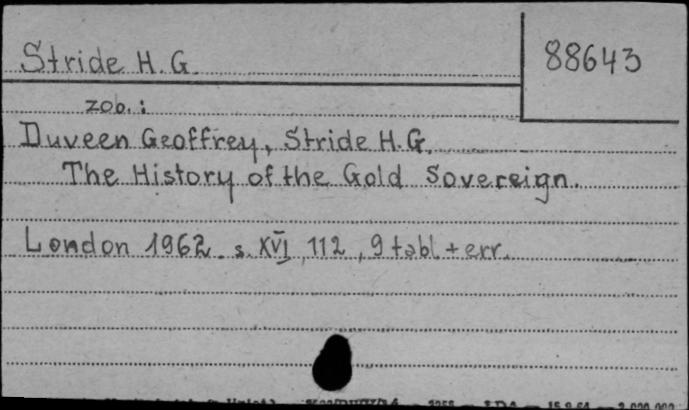 Stride H. G.
88643
zob. :
Duveen Geoffrey, Stride H. G.
The History of the Gold Sovereign.
London 1962. s. XVI, 112, 9 tabl. + err.